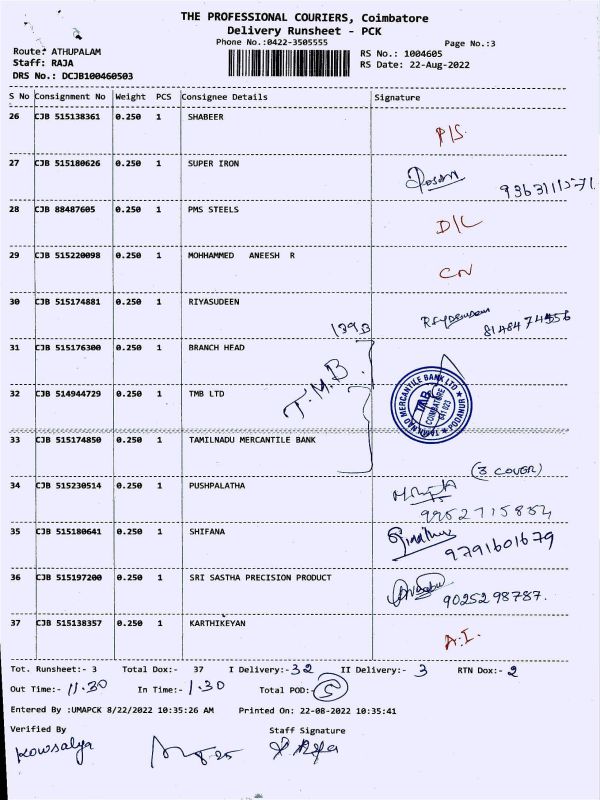 THE PROFESSIONAL COURIERS, Coimbatore
Delivery Runsheet - PCK
Phone No.:0422-3505555
Page No.:3
Route: ATHUPALAM
Staff: RAJA
DRS No.: DCJB100460503
RS No.: 1004605
RS Date: 22-Aug-2022
S No Consignment No Weight PCS Consignee Details Signature
26 CJB 515138361 0.250 1 SHABEER
27 CJB 515180626 0.250 1 SUPER IRON
28 CJB 88487605 0.250 1 PMS STEELS
D/L
29 CJB 515220098 0.250 1 MOHHAMMED ANEESH R
CN
30 CJB 515174881 0.250 1 RIYASUDEEN
31 CJB 515176300 0.250 1 BRANCH HEAD
32 CJB 514944729 0.250 1 TMB LTD
T.M.B.
TAMILNAD MERCANTILE BANK LTD
TMB
COIMBATORE
641 023
PODANUR
33 CJB 515174850 0.250 1 TAMILNADU MERCANTILE BANK
(3 COVER)
34 CJB 515230514 0.250 1 PUSHPALATHA
9952715854
35 CJB 515180641 0.250 1 SHIFANA
9791601679
36 CJB 515197200 0.250 1 SRI SASTHA PRECISION PRODUCT
9025298787.
37 CJB 515138357 0.250 1 KARTHIKEYAN
A.I.
Tot. Runsheet:- 3 Total Dox:- 37 I Delivery:- 32 II Delivery:- 3 RTN Dox:- 2
Out Time:- 11.30 In Time:- 1.30 Total POD:- 5
Entered By :UMAPCK 8/22/2022 10:35:26 AM Printed On: 22-08-2022 10:35:41
Verified By Staff Signature
kowsalya